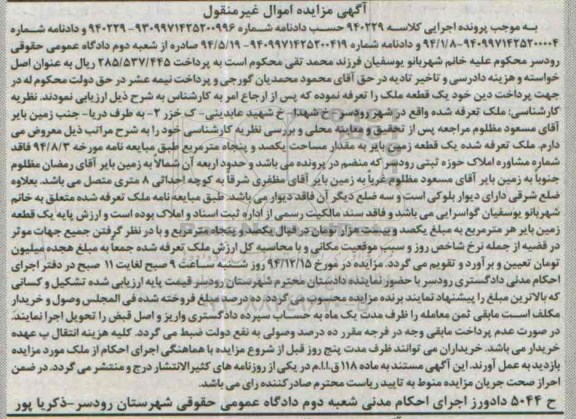 آگهی مزایده اموال غیرمنقول
به موجب پرونده اجرایی کلاسه ۹۴۰۲۲۹ حسب دادنامه شماره ۹۳۰۹۹۷۱۴۲۵۲۰۰۹۹۶ - ۹۴۰۲۲۹ و دادنامه شماره
۹۴۰۹۹۷۱۴۲۵۲۰۰۰۰۴-۹۴/۱/۸ و دادنامه شماره ۹۴۰۹۹۷۱۴۲۵۲۰۰۴۱۹-۹۴/۵/۱۹ صادره از شعبه دوم دادگاه عمومی حقوقی
رودسر محکوم علیه خانم شهربانو یوسفیان فرزند محمد تقی محکوم است به پرداخت ۲۸۵/۵۳۷/۴۴۵ ریال به عنوان اصل
خواسته و هزینه دادرسی و تاخیر تادیه در حق آقای محمود محمدیان گورجی و پرداخت نیمه عشر در حق دولت محکوم له در
جهت پرداخت دین خود یک قطعه ملک را تعرفه نموده که پس از ارجاع امر به کارشناس به شرح ذیل ارزیابی نمودند. نظریه
کارشناسی: ملک تعرفه شده واقع در شهر رودسر - خ شهدا - خ شهید عابدینی - ک خزر ۲- به طرف دریا- جنب زمین بایر
آقای مسعود مظلوم مراجعه پس از تحقیق و معاینه محلی و بررسی نظریه کارشناسی خود را به شرح مراتب ذیل معروض می
دارم. ملک تعرفه شده یک قطعه زمین بایر به مقدار مساحت یکصد و پنجاه مترمربع طبق مبایعه نامه مورخه ۹۴/۸/۳ فاقد
شماره مشاوره املاک حوزه ثبتی رودسر که منضم در پرونده می باشد و حدود اربعه آن شمالاً به زمین بایر آقای رمضان مظلوم
جنوباً به زمین بایر آقای مسعود مظلوم غرباً به زمین بایر آقای مظفری شرقاً به کوچه احداثی ۸ متری متصل می باشد. بعلاوه
ضلع شرقی دارای دیوار بلوکی است و سه ضلع دیگر آن فاقد دیوار می باشد. طبق مبایعه نامه ملک تعرفه شده متعلق به خانم
شهربانو یوسفیان گواسرایی می باشد و فاقد سند مالکیت رسمی از اداره ثبت اسناد و املاک بوده است و ارزش پایه یک قطعه
زمین بایر هر مترمربع به مبلغ یکصد و بیست هزار تومان در قبال یکصد و پنجاه مترمربع و با در نظر گرفتن جمیع جهات موثر
در قضیه از جمله نرخ شاخص روز و سیر موقعیت مکانی و با محاسبه کل ارزش ملک تعرفه شده جمعا به مبلغ هجده میلیون
تومان تعیین و برآورد و تقویم می گردد. مزایده در مورخ ۹۴/۱۲/۱۵ روز شنبه ساعت ۹ صبح لغایت ۱۱ صبح در دفتر اجرای
احکام مدنی دادگستری رودسر با حضور نماینده دادستان محترم شهرستان رودسر قیمت پایه ارزیابی شده تشکیل و کسانی
که بالاترین مبلغ را پیشنهاد نمایند برنده مزایده محسوب می گردد. ده درصد مبلغ فروخته شده فی المجلس وصول و خریدار
مکلف است مابقی ثمن معامله را ظرف مدت یک ماه به حساب سپرده دادگستری واریز و اصل قبض را تحویل اجرا نمایند.
در صورت عدم پرداخت مابقی وجه در فرجه مقرر ده درصد وصولی به نفع دولت ضبط می گردد. کلیه هزینه انتقال به عهده
خریدار می باشد. خریداران می توانند ظرف مدت پنج روز قبل از شروع مزایده با هماهنگی اجرای احکام از ملک مورد مزایده
بازدید به عمل آورند. این آگهی مستند به ماده ۱۱۸ ق.ا.ا.م در یکی از روزنامه های کثیرالانتشار درج و منتشر می گردد. در ضمن
احراز صحت جریان مزایده منوط به تایید ریاست محترم صادرکننده رای می باشد.
ح ۵۰۴۴ دادورز اجرای احکام مدنی شعبه دوم دادگاه عمومی حقوقی شهرستان رودسر-ذکریا پور